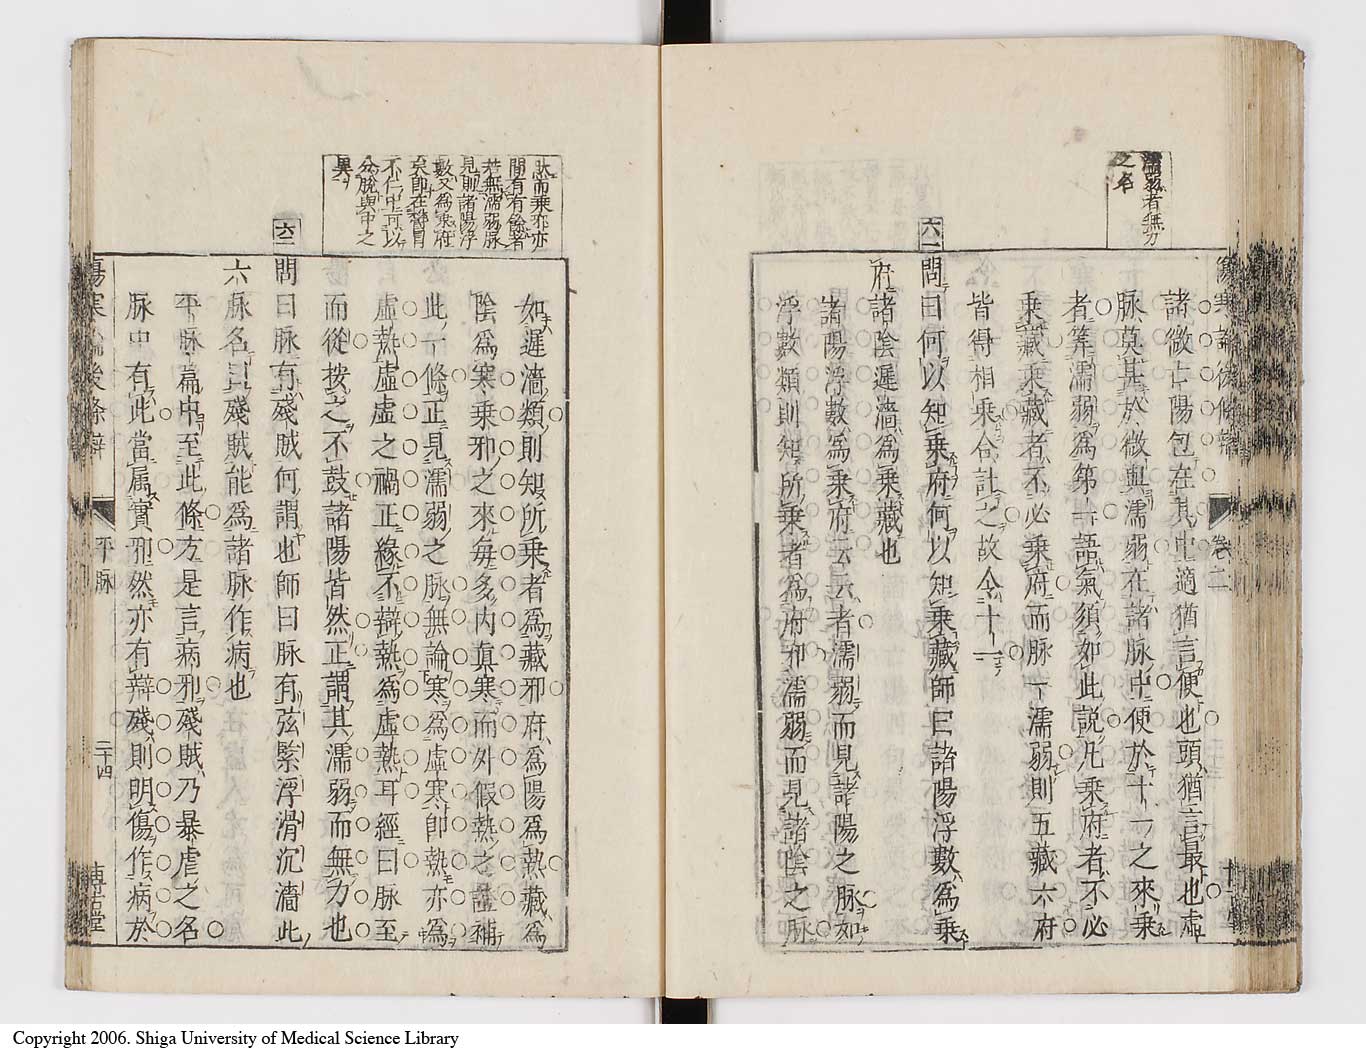 濡弱者無力
之名
諸微亡陽包在其中適猶言便也頭猶言最也虛
脉莫甚於微與濡弱在諸脉中便於十一之來乗
者筭濡弱為第一語氣須如此説凡乗府者不必
乗藏乗藏者不必乗府而脉一濡弱則五藏六府
皆得相乗合計之故令十一
六一
問曰何以知乗府何以知乗藏師曰諸陽浮數為乗
府諸陰遲濇為乗藏也
諸陽浮數為乗府云云者濡弱而見諸陽之脉如
浮數類則知所乗者為府邪濡弱而見諸陰之脉
卷二
此而乗亦亦
間有有餘者
若無濡弱脉
見則諸陽浮
數又為乗府
矣即在譫
不仁中可以
分脱與中之
異
如遲濇類則知所乗者為藏邪府為陽為熱藏為
陰為寒乗邪之來毎多内真寒而外假熱之證補
此一條正見濡弱之脉無論寒為虛寒即熱亦為
虛熱虛虛之禍正緣不辯熱為虛熱耳經曰脉至
而從按之不鼓諸陽皆然正謂其濡弱而無力也
六二
問曰脉有殘賊何謂也師曰脉有弦緊浮滑沉濇此
六脉名曰殘賊能為諸脉作病也
平脉篇中至此條方是言病邪殘賊乃暴虐之名
脉中有此當属實邪然亦有辯殘則明傷作病於
傷寒論後條辯
平脉
二十四
博古堂